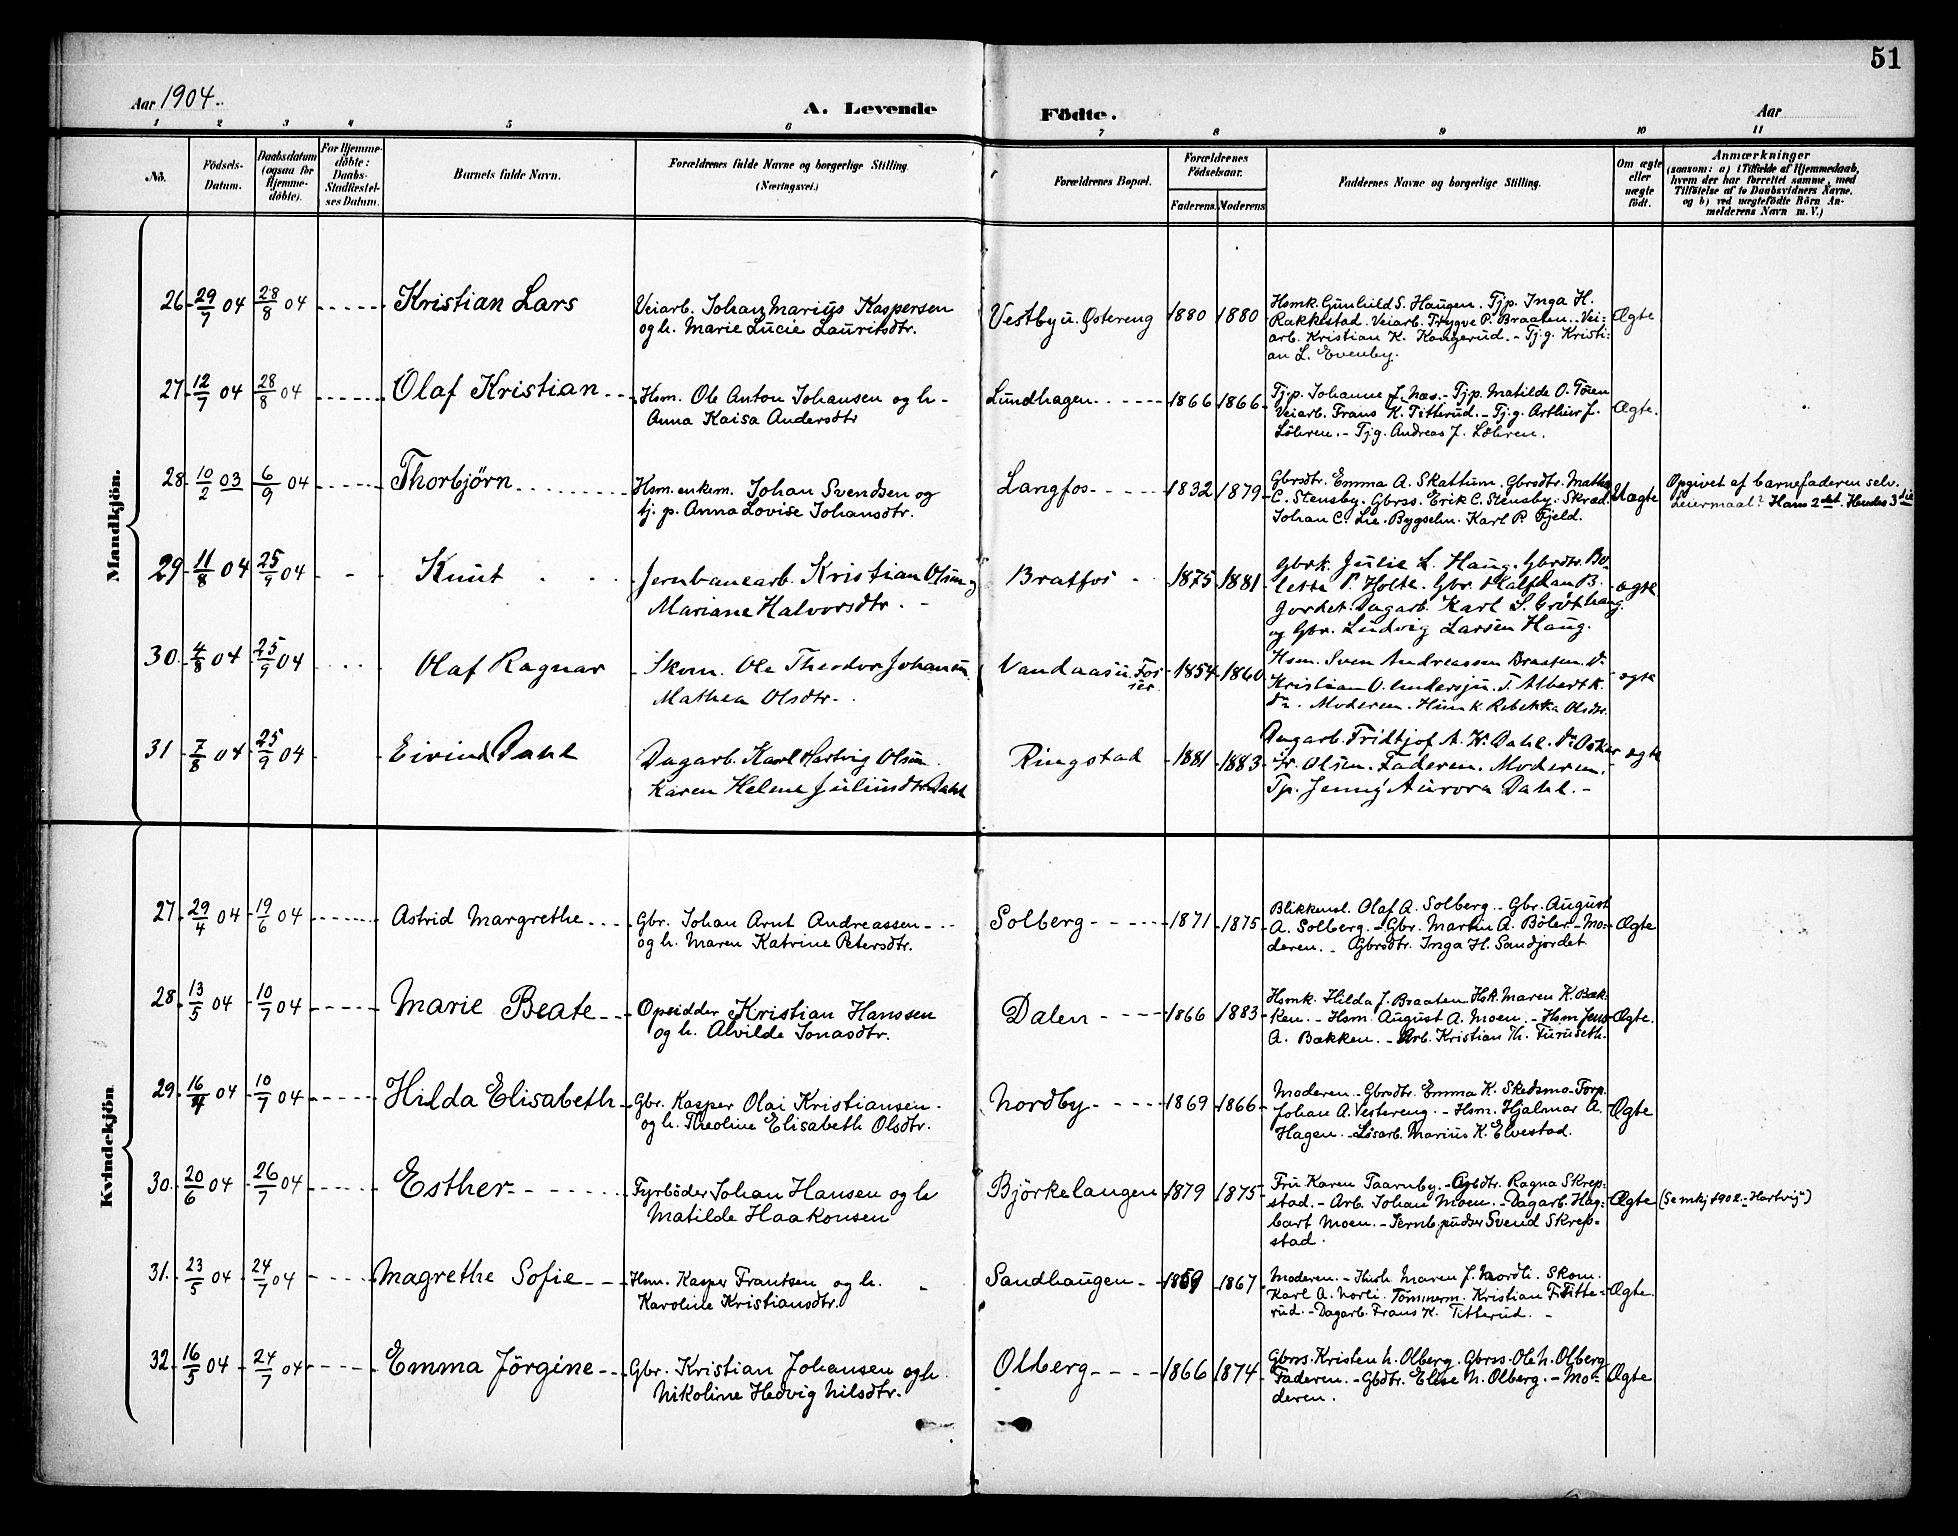 51
Aar 1904.
A. Levende Födte.
Aar
1 2 3 4 5 6 7 8 9 10 11
No.
Födsels-Datum.
Daabsdatum (ogsaa for Hjemme-döbte).
For Hjemme-döbte: Daabs-Stadfæstel-ses Datum.
Barnets fulde Navn.
Forældrenes fulde Navne og borgerlige Stilling. (Næringsvei.)
Forældrenes Bopæl.
Forældrenes Födselsaar.
Faderens. Moderens.
Faddernes Navne og borgerlige Stilling.
Om ægte eller uægte födt.
Anmærkninger
(saasom: a) i Tilfælde af Hjemmedaab, hvem der har forrettet samme, med Tilföielse af to Daabsvidners Navne, og b) ved uægtefödte Börn An-melderens Navn m. V.)
Mandkjön.
26 29/7 04 28/8 04 Kristian Lars
Veiarb. Johan Marius Kaspersen
og h. Marie Lucie Lauritsdtr.
Vestby u. Østereng 1880 1880
Hsmk. Gunhild S. Haugen. Tjp. Inga H.
Rakkestad. Veiarb. Trygve P. Braaten. Vei-
arb. Kristian K. Kongerud. - Tj.g. Kristi-
an L. Evenby.
Ægte
27 12/7 04 28/8 04 Olaf Kristian
Hsm. Ole Anton Johansen og h.
Anna Kaisa Andersdtr
Lundhagen 1866 1866
Tj.p. Johanne J. Næs. - Tjp. Matilde O. Tøien
Veiarb. Frans K. Titterud. - Tj.g. Arthur J.
Löhren. - Tjg. Andreas J. Löhren.
Ægte.
28 10/2 03 6/9 04 Thorbjörn
Hsm. enkem. Johan Svendsen og
tj. p. Anna Lovise Johansdtr.
Langfos 1832 1879
Gbrdtr. Emma A. Skattum. Gbrdtr. Mathea
C. Stensby. Gbrss. Erik C. Stensby. Skræd.
Johan C. Lie. Bygselm. Karl P. Fjeld.
Uægte
Opgivet af barnefaderen selv.
Leiermaal: Hans 2det. Hendes 3die
29 11/8 04 25/9 04 Knut
Jernbanearb. Kristian Olsen og
Mariane Halvorsdtr.
Bratfos 1875 1881
Gbrk. Julie L. Haug. Gbrdtr. Bo-
lette P. Holte. Gbr. Halfdan B.
Jordet. Dagarb. Karl S. Gröthaug.
og Gbr. Ludvig Larsen Haug.
ægte
30. 4/8 04 25/9 04 Olaf Ragnar
Skom. Ole Theodor Johansen
Mathea Olsdtr.
Vandaas u. Fosser 1854 1860
Hsm. Sven Andreassen Braaten. Do
Kristian O. T. Albert K.
Do. Moderen. Hsmk. Rebekka Olsdtr.
ægte
31 7/8 04 25/9 04 Eivind Dahl
Dagarb. Karl Hartvig Olsen.
Karen Helene Juliusdtr Dahl
Ringstad 1881 1883
Dagarb. Fridtjof A. K. Dahl. Do Oskar
Fr. Olsen. Faderen. Moderen.
Tp. Jenny Aurora Dahl.
ægte
Kvindekjön
27 29/4 04 19/6 04 Astrid Margrethe
Gbr. Johan Arnt Andreassen
og h. Maren Katrine Petersdtr.
Solberg 1871 1875
Blikkensl. Olaf A. Solberg. - Gbr. August
A. Solberg. - Gbr. Martin A. Böler. - Mo-
deren. - Gbrdtr. Inga H. Sandjordet
Ægte
28 13/5 04 10/7 04 Marie Beate
Opsidder Kristian Hanssen
og h. Alvilde Jonasdtr.
Dalen 1866 1883
Hsmk. Hilda J. Braaten. Hsk. Maren K. Bæk-
ken. - Hsm. August A. Moen. - Hsm Jens
A. Bækken. - Arb. Kristian Th. Furuseth.
Ægte.
29 16/4 04 10/7 04 Hilda Elisabeth
Gbr. Kasper Olai Kristiansen.
og h. Theoline Elisabeth Olsdtr.
Nordby 1869 1866
Moderen. - Gbrdtr. Emma K. Skedsmo-Torp.
Johan A. Vestereng. - Hsm. Hjalmar A.
Hagen. - Løsarb. Marius K. Elvestad.
Ægte
30. 20/6 04 26/7 04 Esther
Fyrböder Johan Hansen og h
Matilde Haakonsen
Björkelangen 1879 1875
Fru Karen Taarnby. - Gbdtr. Ragna Skrep-
stad. - Arb. Johan Moen. - Dagarb. Hag-
bart Moen. - Jernb.pudser Svend Skrep-
stad.
Ægte
31. 23/5 04 24/7 04 Magrethe Sofie
Hsm. Kasper Frantsen og h.
Karoline Kristiansdtr.
Sandhaugen 1859 1867
Moderen. - Maren J. Nordli. Skom.
Karl A. Norli. Tömmerm. Kristian F. Titte-
rud. - Dagarb. Frans K. Titterud.
Ægte.
32 16/5 04 24/7 04 Emma Jörgine
Gbr. Kristian Johansen og h.
Nikoline Hedvig Nilsdtr.
Olberg 1866 1874
Gbrss. Kristen N. Olberg. Gbrss. Ole N. Olberg
Faderen. - Gbdtr. Elise N. Olberg. - Mo-
deren.
Ægte